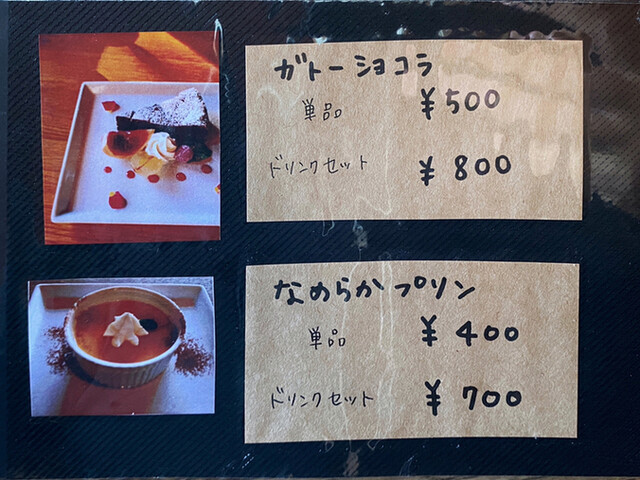 ガトーショコラ
単品 ¥500
ドリンクセット ¥800
なめらかプリン
単品 ¥400
ドリンクセット ¥700